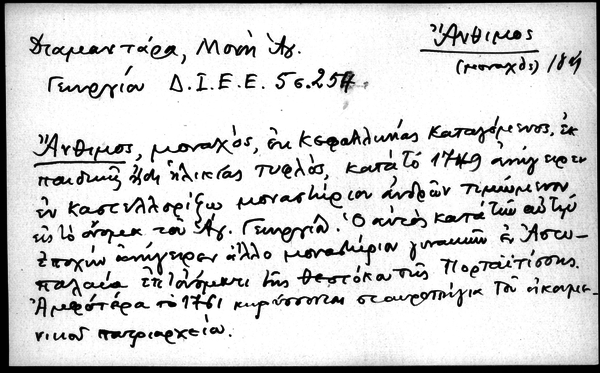 Διαμαντάρα, Μονὴ Ἁγ.
Γεωργίου Δ.Ι.Ε.Ε. 5 σ. 254
Ἄνθιμος
(μοναχὸς)
Ἄνθιμος, μοναχός, ἐκ Κεφαλληνίας καταγόμενος, ἐκ
παιδικῆς ἤδη ἡλικίας τυφλός, κατὰ τὸ 1749 ἀνήγειρεν
ἐν Καστελλορίζῳ μοναστήριον ἀνδρῶν τιμώμενον
εἰς τὸ ὄνομα τοῦ Ἁγ. Γεωργίου. Ὁ αὐτὸς κατὰ τὴν αὐτὴν
ἐποχὴν ἀνήγειρεν ἄλλο μοναστήριον γυναικῶν ἐν Ἀστυ-
παλαίᾳ ἐπ' ὀνόματι τῆς Θεοτόκου τῆς Πορταϊτίσσης.
Ἀμφότερα τὸ 1761 κηρύσσονται σταυροπήγια τοῦ οἰκουμε-
νικοῦ πατριαρχείου.